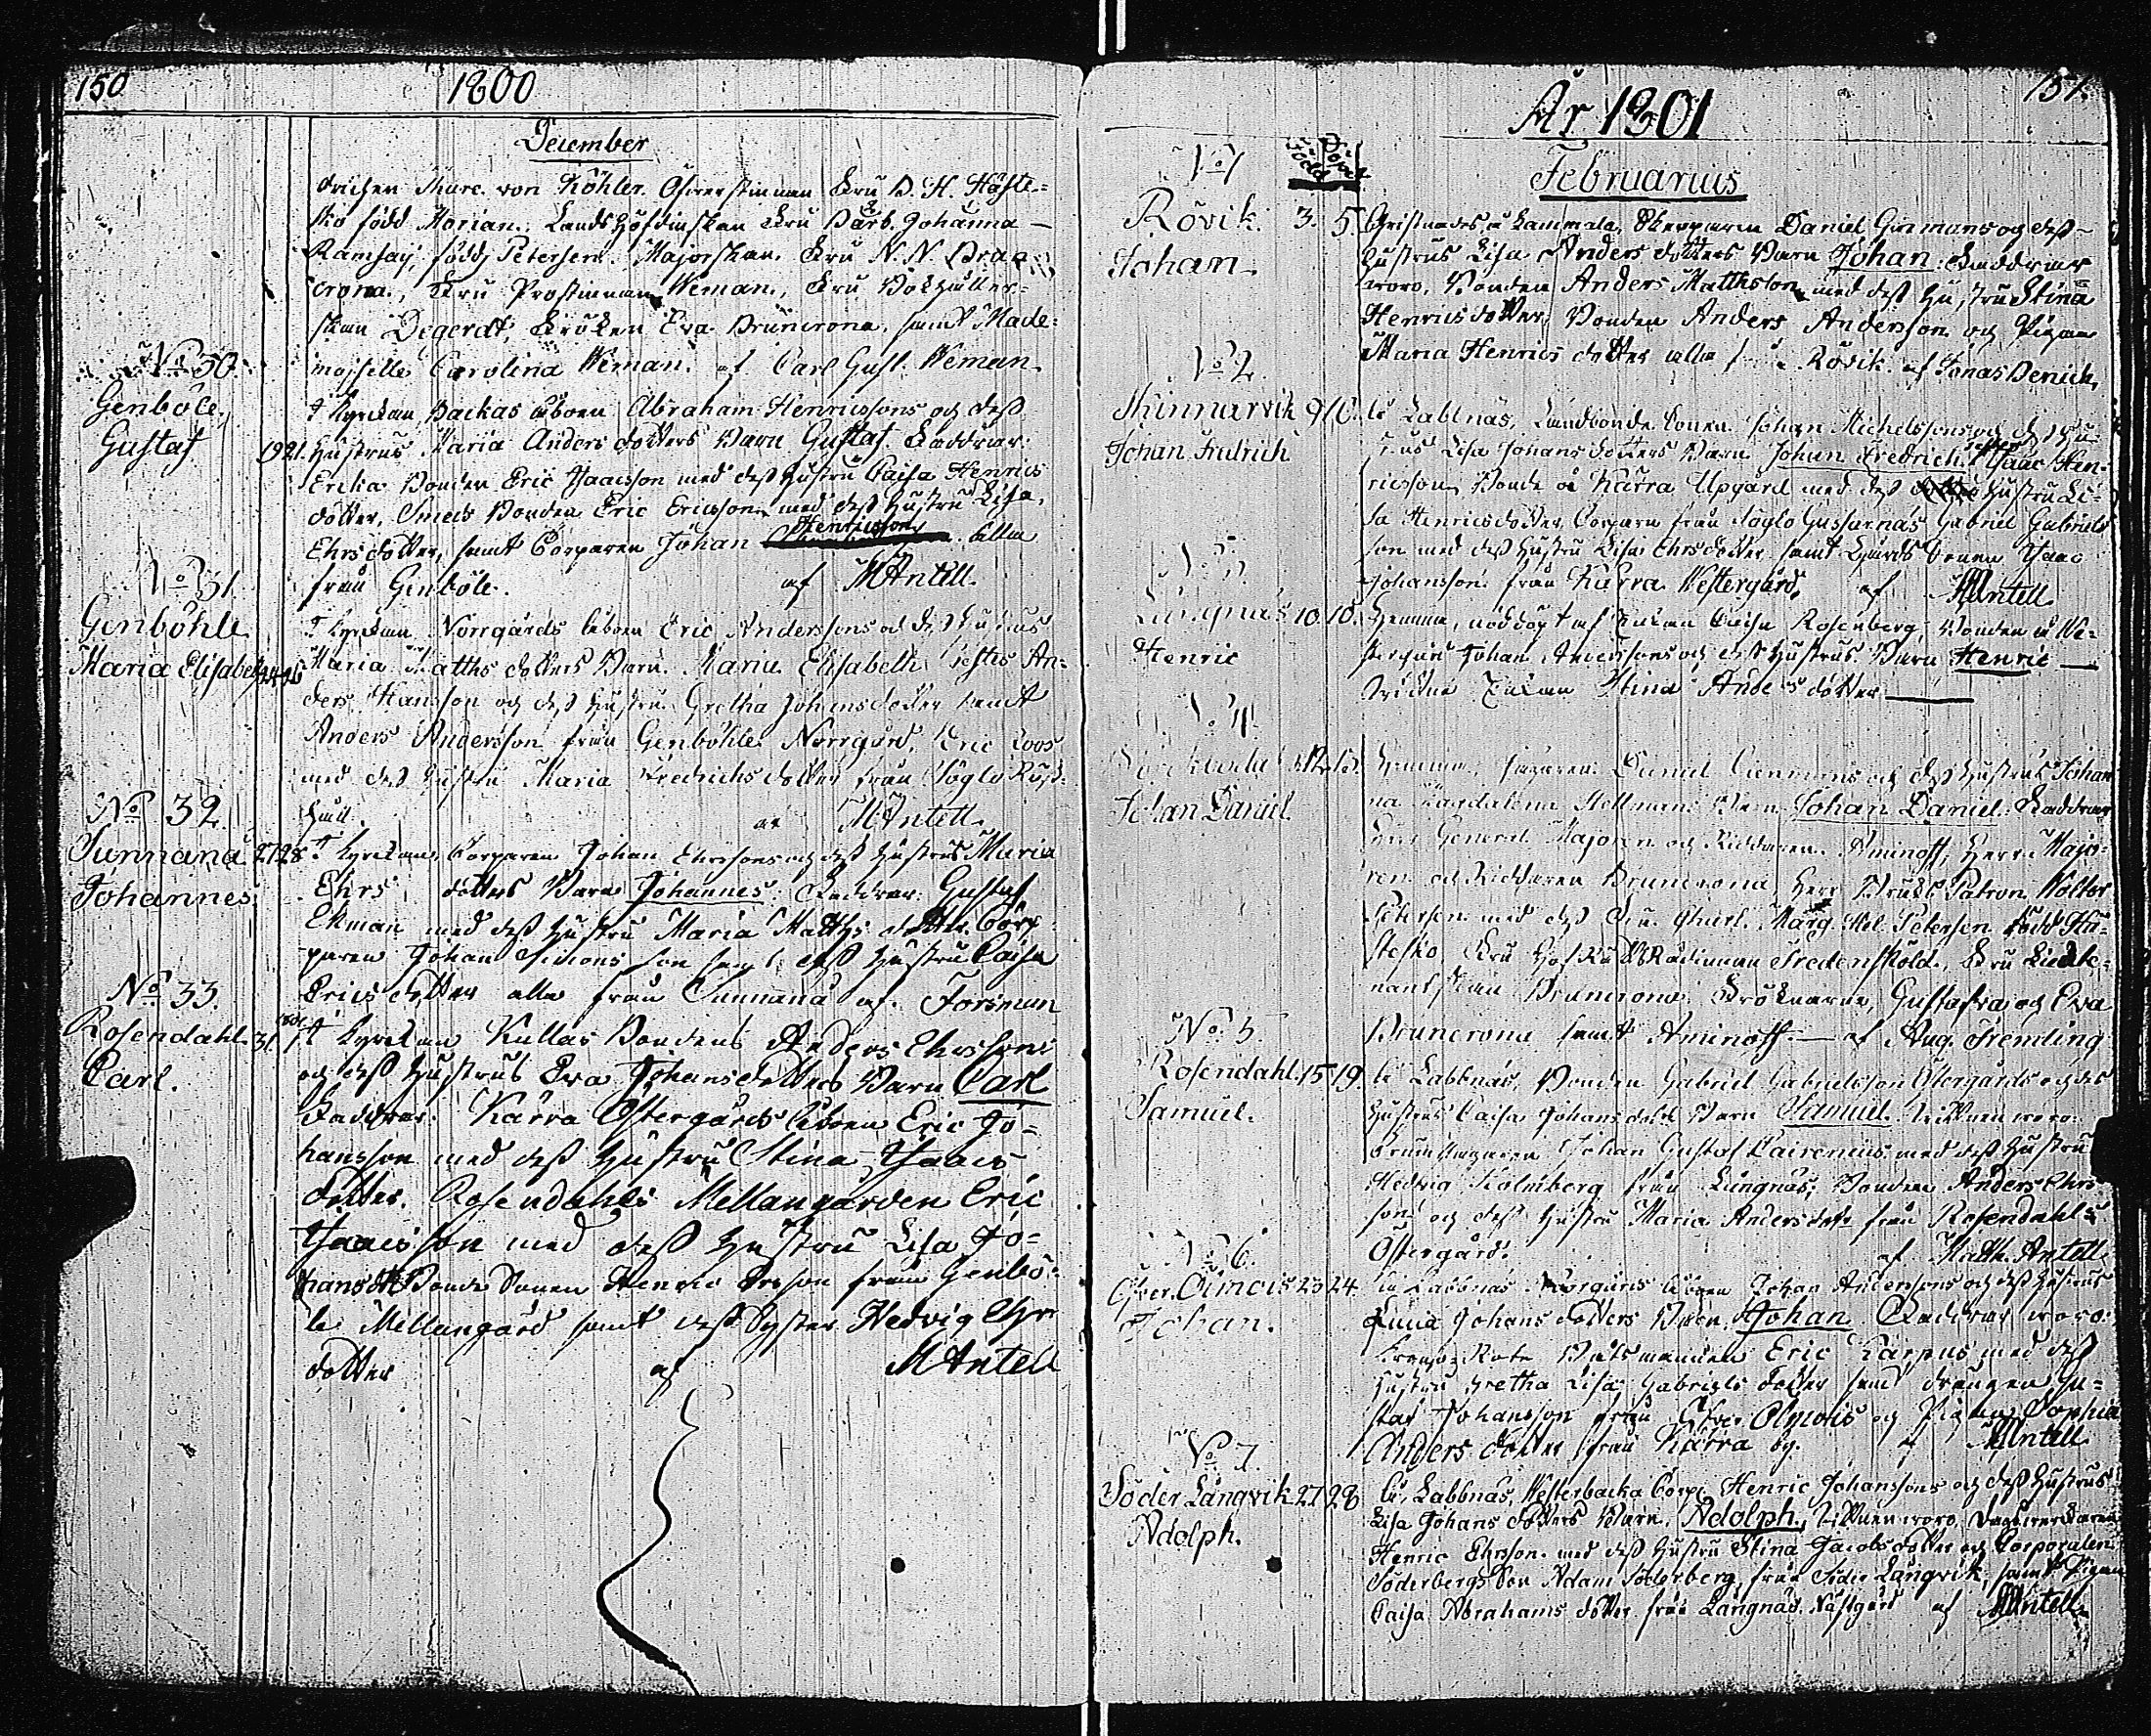 150
1800
December
Marc. von Köhler. Öfverstinnan Fru B. H. Häste-
sko född Morian. Landshöfdinskan Fru Barb. Johanna
Ramsay, född Petersen. Majorskan Fru N. N. Brun-
crona, Fru Prostinnan Weman, Fru Bokhåller-
skan Degerdt, Fröken Eva Bruncrona, samt Made-
mojselle Carolina Weman. af Carl Gust. Weman.
No 30.
Genböle
Gustaf
19 21.
I Kyrkan, Backas åboen Abraham Henricssons och dess
Hustrus Maria Anders dotters Barn Gustaf. Faddrar:
Erikas Bonden Eric Isaacsson med dess Hustru Caisa Henrics
dotter, Smeds Bonden Eric Ericsson med dess Hustru Lisa
Ehrsdotter, samt Torparen Johan Henricsson alla
från Genböle. af MAntell.
No 31
Genböhle
Maria Elisabeth
I Kyrkan Norrgårds åboen Eric Anderssons och dess Hustrus
Maria Matths dotters Barn Maria Elisabeth Testes An-
ders Hansson och dess Hustru Gretha Johansdotter samt
Anders Andersson från Genböhle Norrgård, Eric Roos
med dess Hustru Maria Fredrichsdotter från Söglo
MAntell
No 32
Sunnanå
Johannes
27 28
I Kyrkan, Torparen Johan Ehrssons och dess Hustrus Maria
Ehrs dotters Barn Johannes. Faddrar: Gustaf
Ekman med dess Hustru Maria Matths dotter. Torp-
paren Johan Simons son samt dess Hustru Caisa
Erics dotter alla från Sunnanå af. Forsman
No 33.
Rosendahl
Carl.
31
I Kyrkan Kullas Bondens Anders Ehrssons
och dess Hustrus Eva Johansdotters Barn Carl
Faddrar. Kärra Östergårds åboen Eric Jo-
hansson med dess Hustru Stina Isaacs
dotter. Rosendahls Mellangården Eric
Isaacsson med dess Hustru Lisa Jo-
hansdr Bonde Sonen Henric Ersson från Genbö-
le Mellangård samt dess Syster Hedvig Ehrs
dotter af MAntell
151.
År 1801
Februarius
No 1
Rövik
Johan
Född Döpt
3. 5.
Christnades i Lammala, Skepparen Daniel Ginmans och dess
Hustrus Lisa Anders dotters Barn Johan. Faddrar
woro, Bonden Anders Matthsson med dess Hustru Stina
Henricsdotter, Bonden Anders Andersson och Pigan
Maria Henrics dotter alla från Rövik. af Jonas Denich.
No 2.
Munnarvik
Johan Fredrich
9 10.
i Labbnäs, Landbonde Sonen Johan Michelssons och dess Hu-
strus Lisa Johans dotters Barn Johan Fredrich. Testes Isaac Hen-
ricsson Bonde å Kärra Upgård med dess Hustru Li-
sa Henricsdotter, Torparen från Söglo Gussarnäs Gabriel Gabriels
son med dess Hustru Lisa Ehrsdotter samt Gårds Sonen Isaac
Johansson från Kärra Westergård. af MAntell
No 3
Långnäs
Henric
10. 10.
Hemma, nöddöpt af Enkan Caisa Rosenberg, Bonden å We-
Johan Anderssons och dess Hustrus Barn Henric
Enkan Stina Anders dotter
No 4.
Johan Daniel
Hemma, Daniel och dess Hustrus Johan-
na Magdalena Hellmans Barn Johan Daniel. Faddrar
Herr General Majoren och Riddaren Aminoff, Herr Majo-
ren och Riddaren Bruncrona, Herr Bruks Patron Wolter
Petersen med dess Fru Charl. Marg. Hel. Petersen född Hä-
stesko, Fru Fredenskold, Fru Lieute-
nantskan Bruncrona. Fröknarna, Gustafva och Eva
Bruncrona samt Aminoff. af Aug. Fremling
No 5
Rosendahl
Samuel.
15 19.
i Labbnäs, Bonden Gabriel Gabrielsson Östergårds och dess
Hustrus Caisa Johans dotters Barn Samuel. Wittnen woro:
Johan Gustaf Cairenius med dess Hustru
Hedvig Holmberg från Långnäs, Bonden Anders Ehrs
son och dess Hustru Maria Andersdotter från Rosendahls
Östergård. af Matth. Antell
No 6.
Öfver Ölmois
Johan.
23 24.
i Labbnäs Norrgårds åboen Johan Anderssons och dess Hustrus
Johans dotters Barn Johan Faddrar woro:
Rote Båtsmannen Eric Karpus med dess
Hustru Gretha Lisa Gabriels dotter samt drängen Gu-
staf Johansson från Öfver Ölmois och Pigan Sophia
Anders dotter från Kärra by. af MAntell
No 7.
Söder Långvik
Adolph.
27 28
i Labbnäs, Westerbacka Torp. Henric Johanssons och dess Hustrus
Lisa Johans dotters Barn, Adolph, Wittnen woro,
Henric Ehrsson med dess Hustru Stina Jacobsdotter och Corporalen
Söderbergs Son Adam Söderberg från Söder Långvik, samt Pigan
Caisa Abrahams dotter från Långnäs Näsgård af MAntell